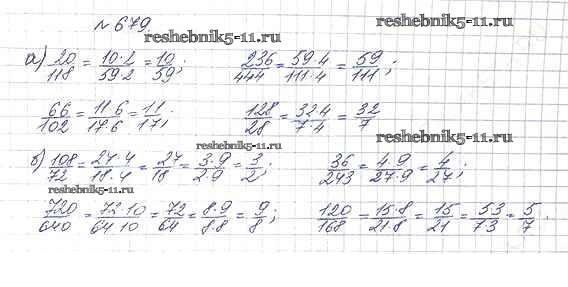 № 679.
reshebnik5-11.ru
reshebnik5-11.ru
а) 20/118 = 10·2/59·2 = 10/59; 236/444 = 59·4/111·4 = 59/111;
66/102 = 11·6/17·6 = 11/17; 128/28 = 32·4/7·4 = 32/7
reshebnik5-11.ru
reshebnik5-11.ru
б) 108/72 = 27·4/18·4 = 27/18 = 3·9/2·9 = 3/2; 36/243 = 4·9/27·9 = 4/27;
reshebnik5-11.ru
720/640 = 72·10/64·10 = 72/64 = 8·9/8·8 = 9/8; 120/168 = 15·8/21·8 = 15/21 = 5·3/7·3 = 5/7.